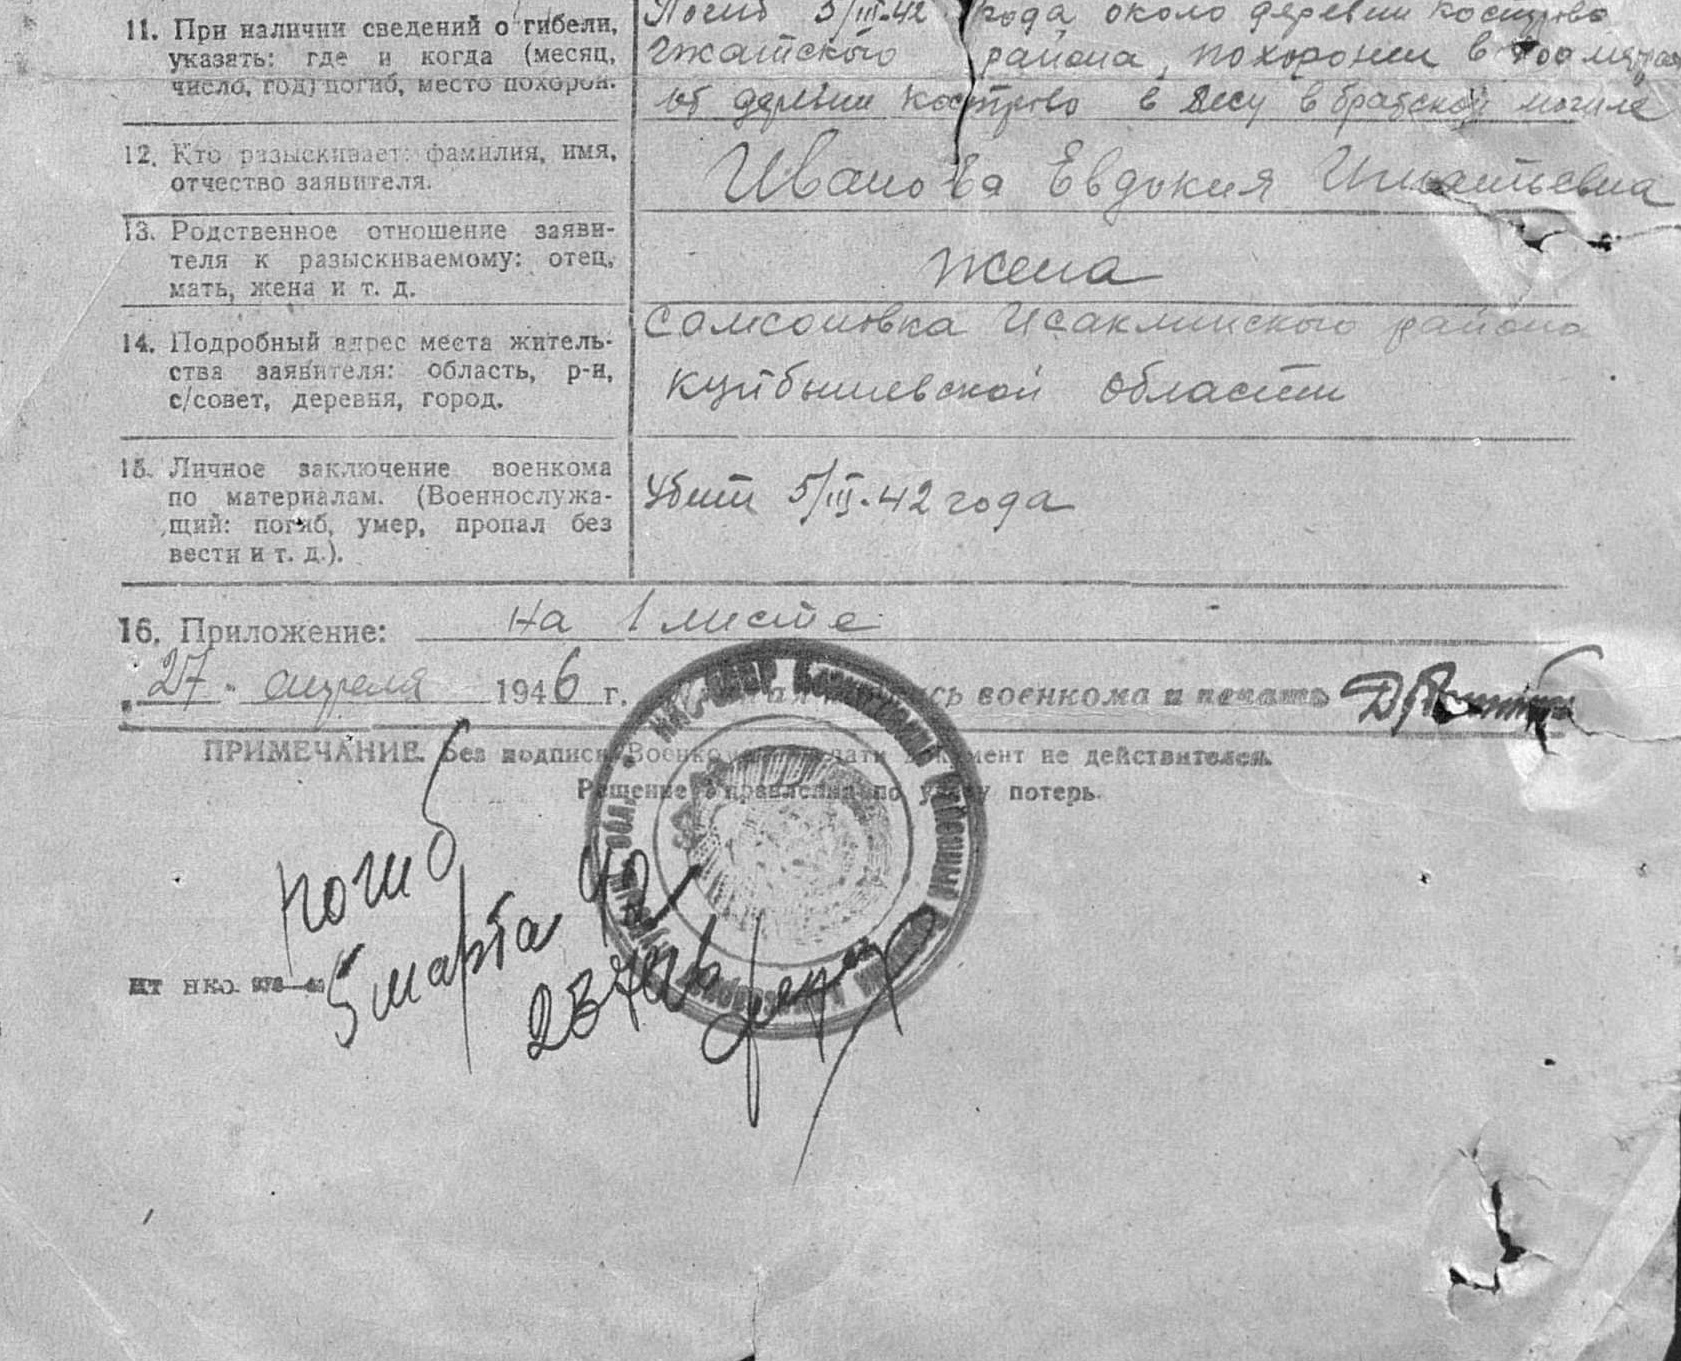 11. При наличии сведений о гибели, указать: где и когда (месяц, число, год) погиб, место похорон.
Погиб 5/III-42 года около деревни Кострово
Гжатского района, похоронен в метрах
от деревни Кострово в лесу в братской могиле
12. Кто разыскивает: фамилия, имя,
отчество заявителя.
Иванова Евдокия Игнатьевна
13. Родственное отношение заяви-
теля к разыскиваемому: отец,
мать, жена и т. д.
жена
14. Подробный адрес места житель-
ства заявителя: область, р-н,
с/совет, деревня, город.
Самсоновка Исаклинского района
Куйбышевской области
15. Личное заключение военкома
по материалам. (Военнослужа-
щий: погиб, умер, пропал без
вести и т. д.).
Убит 5/III-42 года
16. Приложение: на 1 листе
„27" апреля 1946 г. подпись военкома и печать
ПРИМЕЧАНИЕ. Без подписи Военкома печати документ не действителен.
Решение Управления по учету потерь.
погиб
5 марта 42
НКО